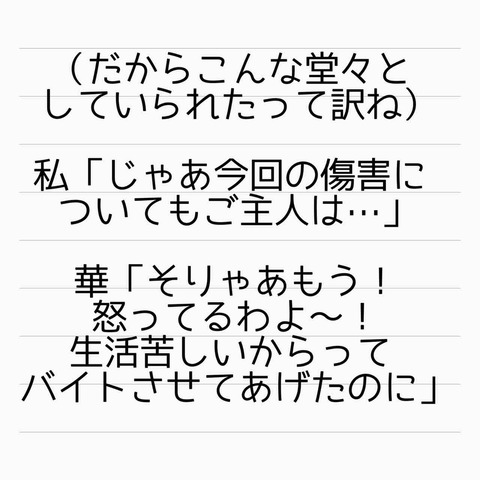 （だからこんな堂々と
していられたって訳ね）
私「じゃあ今回の傷害に
ついてもご主人は…」
華「そりゃあもう！
怒ってるわよ〜！
生活苦しいからって
バイトさせてあげたのに」